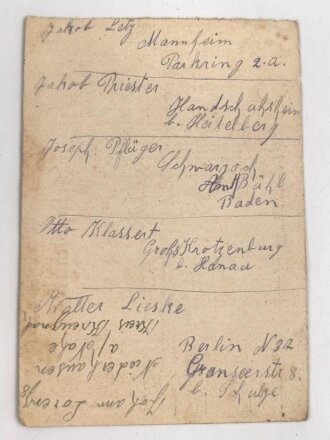 Jakob Letz
Mannheim
Parkring 2.a.
Jakob Priester
Handschuhsheim
b. Heitelberg
Joseph Pflüger
Schwarzach
Amt Bühl
Baden
Otto Klassert
Groß Krotzenburg
b. Hanau
Walter Lieske
Berlin N 37
Granseerstr 8.
b. Schulze
Johann Lorenz
Niederhausen
a/d Nahe
Kreis Kreuznach